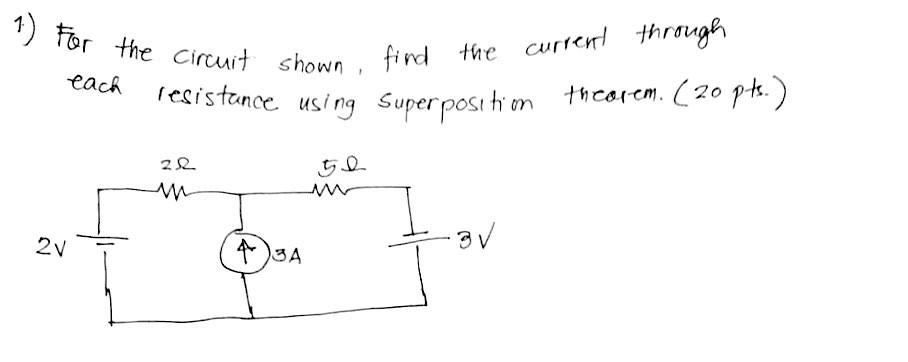 1) For the circuit shown, find the current through
each resistance using Superposition theorem. (20 pts.)
2Ω 5Ω
2V 3A 3V